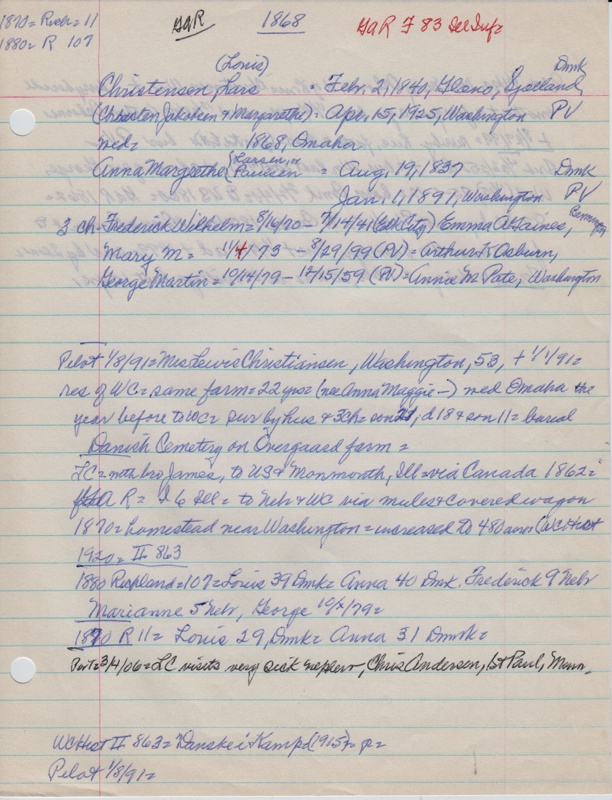 1870 = Rich = 11
1880 = R 107
GaR
1868
GaR F 83 Ill Inf
(Louis)
Christensen, Lars = Febr. 2, 1840, Sjælland, Dmk
(Christen Jakobsen & Margarethe) = Apr. 15, 1925, Washington PV
med = 1868, Omaha
Anna Margrethe (Larsen, or Paulsen = Aug, 19, 1837 Dmk
Jan. 1, 1891, Washington PV Cemetery
3 ch = Frederick Wilhelm = 8/16/70 - 7/14/41 (Elk City) Emma Gaines,
Mary M = 11/4/73 - 8/29/99 (PV) = Arthur Osburn,
George Martin = 10/14/79 - 12/15/59 (PV) = Annie M. Pate, Washington
Pilot 1/8/91 = Mrs Lewis Christiansen, Washington, 53, + 1/1/91 =
res of WC = same farm = 22 yrs = (nee Anna Maggie -) med Omaha the
year before to WC = sur by hus & 3 ch = son 21, d 18 & son 11 = buried
Danish Cemetery on Overgaard farm =
LC = with bro James, to US & Monmouth, Ill = via Canada 1862 =
to Nebr & WC via mules & covered wagon
1870 = homestead near Washington = increased to 480 acres (WC Hist
1920 = II 863
1880 Richland = 107 = Louis 39 Dmk = Anna 40 Dmk. Frederick 9 Nebr
Marianne 5 Nebr, George 10/ /79 =
1870 R 11 = Louis 29, Dmk = Anna 31 Dmrk =
3/1/06 = LC visits very sick nephew, Chris Andersen, St Paul, Minn.
WC Hist II 863 = Danske i Kamp (1915) = p =
Pilot 1/8/91 =